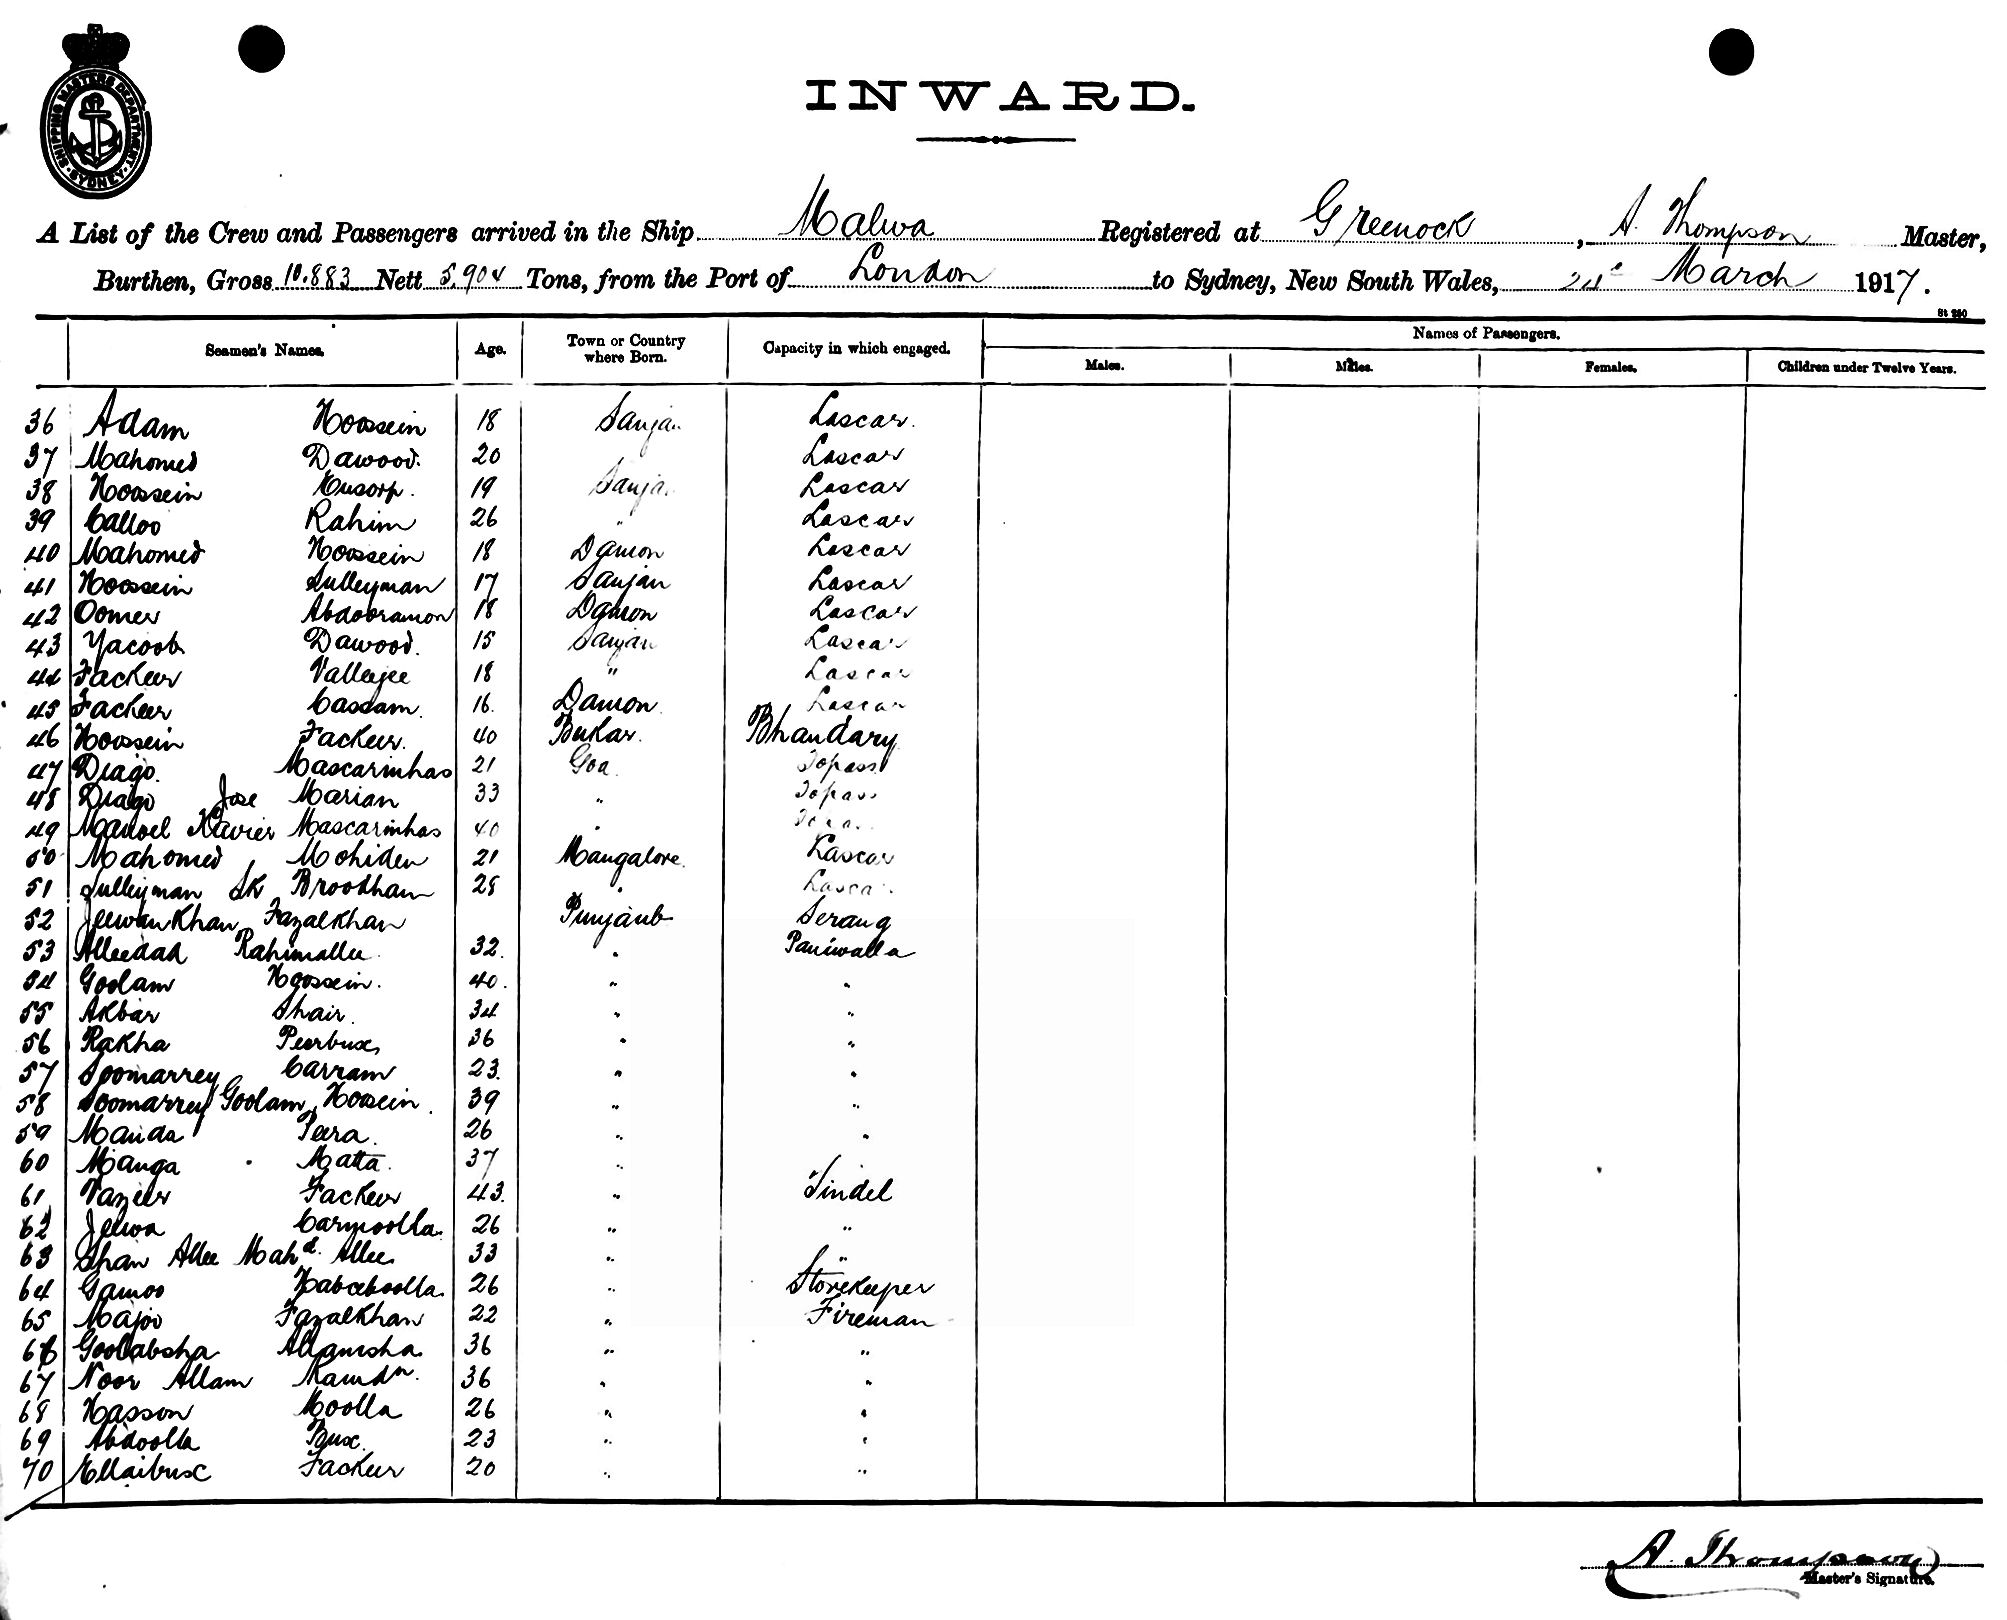 SHIPPING MASTERS DEPARTMENT
SYDNEY
INWARD.
A List of the Crew and Passengers arrived in the Ship Malwa Registered at Greenock, A. Thompson Master,
Burthen, Gross 10.883 Nett 5,904 Tons, from the Port of London to Sydney, New South Wales, March 1917.
St 250
Seamen's Names. Age. Town or Country where Born. Capacity in which engaged. Names of Passengers.
Males. Males. Females. Children under Twelve Years.
36 Adam Hoossein 18 Sanjan Lascar.
37 Mahomed Dawood. 20 Lascar
38 Hoossein 19 Sanjan Lascar
39 Calloo Rahim 26 " Lascar
40 Mahomed Hoossein 18 Damon Lascar
41 Hoossein Sulleyman 17 Sanjan Lascar
42 Oomer Abdooramon 18 Damon Lascar
43 Yacoob Dawood. 15 Sanjan Lascar
44 Fackeer Vallejee 18 " Lascar
45 Fackeer Cassam. 16. Damon. Lascar
46 Hoossein Fackeer. 40 Bukar. Bhandary
47 Diago. Mascarinhas 21 Goa. Topass
48 Diago Jose Marian 33 " Topass
49 Manoel Xavier Mascarinhas 40 "
50 Mahomed Mohiden 21 Mangalore. Lascar
51 Sulleyman Sk Broodham 28 " Lascar
52 Jeewankhan Fazalkhan Punjaub Serang
53 Alleedad Rahimallee. 32. " Paniwalla
54 Goolam Hoossein. 40. " "
55 Akbar Shair. 34 " "
56 Rakha Peerbux 36 " "
57 Soomarrey Carram 23. " "
58 Soomarrey Goolam Hoosein. 39 " "
59 Manda Peera. 26 " "
60 Manga Matta. 37 " "
61 Vazeer Fackeer 43. " Tindel
62 Jeewa Carmoolla. 26 " "
63 Shan Allee Mahd. Allee 33 " "
64 Gamoo Habeeboolla. 26 " Storekeeper
65 Majoo Fazalkhan 22 " Fireman
66 Goolabsha Allamsha. 36 " "
67 Noor Allam Ramdn. 36 " "
68 Hasson Moolla 26 " "
69 Abdoolla Bux. 23 " "
70 Ellaibux Fackeer 20 " "
A. Thompson
Master's Signature.